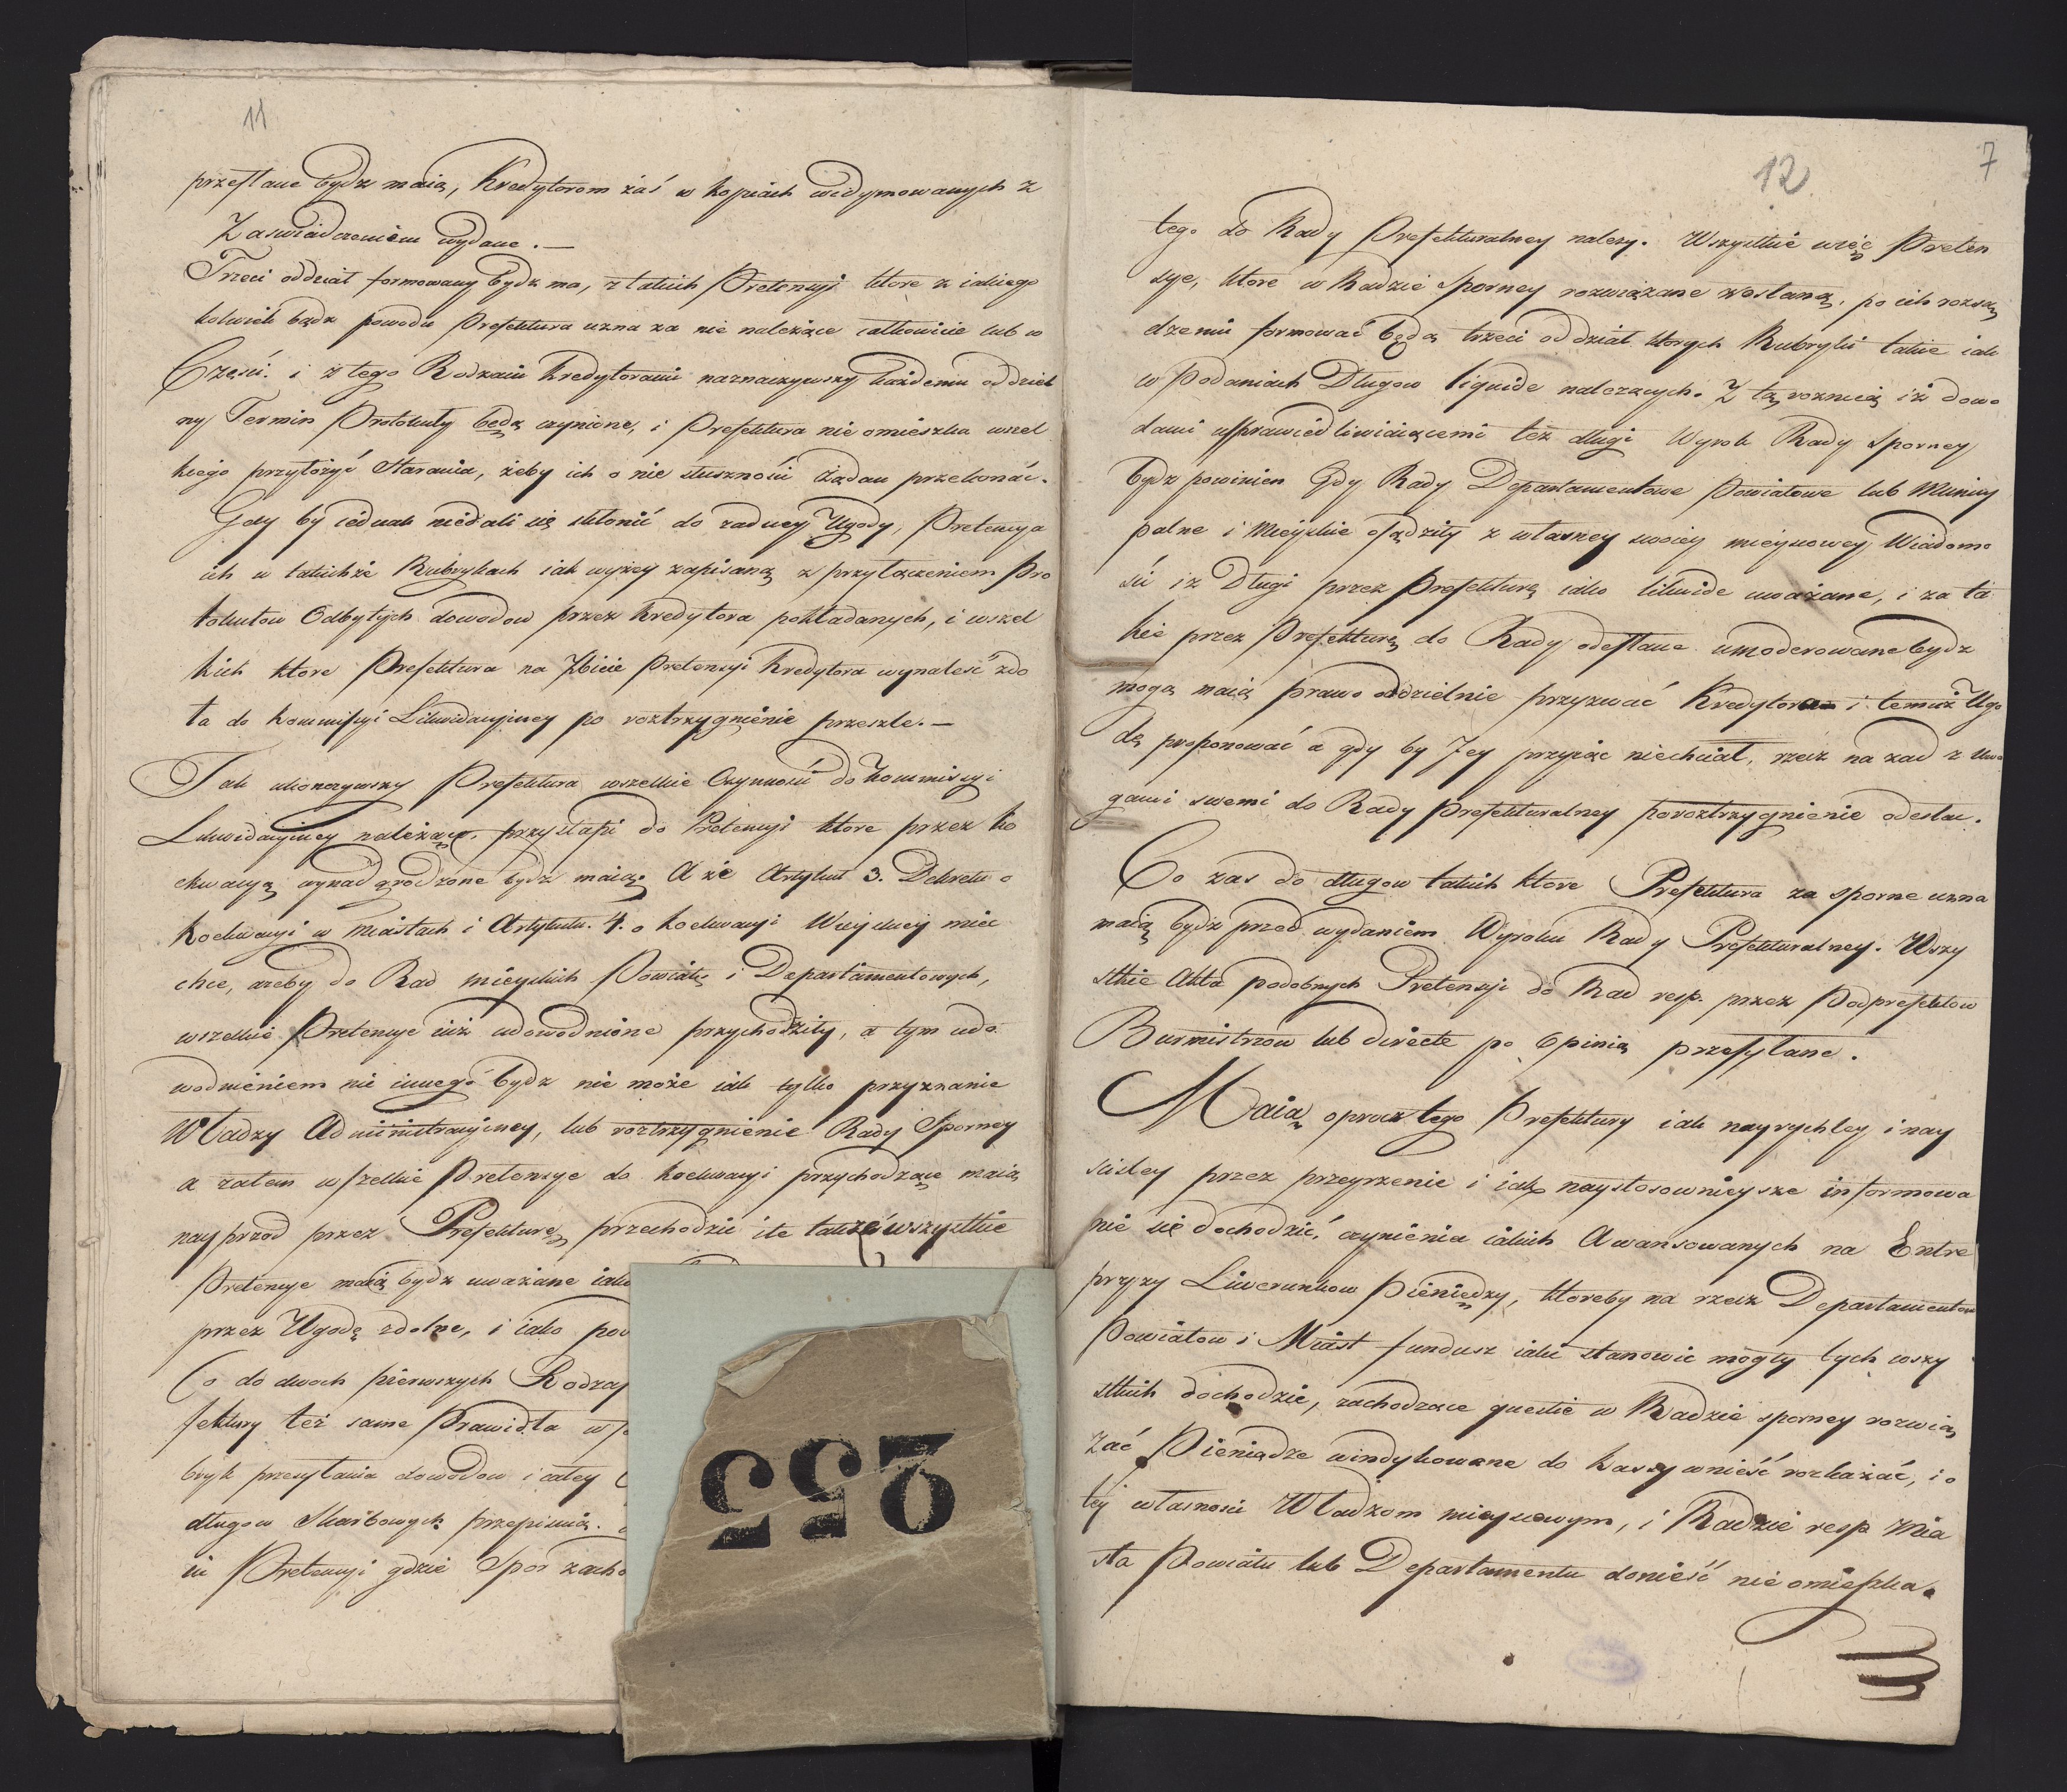 11
przesłane bydz maią, Kredytorom zaś w kopiach widymowanych z
Zaswiadczeniem wydane. —
Trzeci oddział formowany bydz ma, z takich Pretensyi ktore z iakiego
kolwiek bądz powodu Prefektura uzna za nie należące całkowicie lub w
Części. i z tego Rodzaiu Kredytorami naznaczywszy każdemu oddziel
ny Termin Protokuły będą czynione, i Prefektura nie omieszka wszel
kiego przyłożyć starania, żeby ich o nie słuszności żądau przekonać.
Gdy by iednak niedali się skłonić do żadney Ugody, Pretensya
ich w takichże Rubrykach iak wyżey zapisaną z przyłączeniem Pro
tokułow Odbytych dowodow przez Kredytora pokładanych, i wszel
kich ktore Prefektura na Zbicie Pretensyi Kredytora wynaleść zdo
ła do Kommissyi Likwidacyiney po roztrzygnienie przeszle. —
Tak ukonczywszy Prefektura wszelkie Czynności do Kommissyi
Likwidacyiney należące, przystąpi do Pretensyi ktore przez Ko
ekwacyą wynadgrodzone bydz maią. A że Artykuł 3. Dekretu o
Koekwacyi w Miastach i Artykułu. 4. o Koekwacyi Wieyskiey miec
chce, azeby do Rad mieyskich Powiatu i Departamentowych,
wszelkie Pretensye iuż udowodnione przychodziły, a tym udo
wodnieniem nic innego bydz nie może iak tylko przyznanie
Władzy Administracyiney, lub roztrzygnienie Rady Sporney
a zatem wszelkie Pretensye do Koekwacyi przychodzące maią
nayprzod przez Prefekturę przechodzic i te także wszystkie
Pretensye maią bydz uważane iako
przez Ugodę zdolne, i iako
Co do dwoch pierwszych
fektury też same Prawidła
bryk przesyłania dowodow i całey
długow Skarbowych przepisuią.
iu Pretensyi gdzie Spor
255
12
7
tego do Rady Prefekturalney nalezy. Wszystkie więc Preten
sye, ktore w Radzie Sporney rozwiązane zostaną, po ich rozsą
dzeniu formować będą trzeci oddział ktorych Rubryki takie iak
w Podaniach Długow liquide nalezących. Z tą roznicą iż dowo
dami usprawiedliwiaiącemi też długi Wyrok Rady Sporney
bydz powinien Gdy Rady Departamentowe Powiatowe lub Municy
palne i Mieyskie osądziły z własney swoiey mieyscowey Wiadomo
ści iz Długi przez Prefekturę iako likwide uważane, i za ta
kie przez Prefekturę do Rady odesłane umoderowane bydz
mogą maią prawo oddzielnie przyzwać Kredytora i temuż Ugo
dę proponować a gdy by Jey przyiąc niechciał, rzecz na zad z Uwa
gami swemi do Rady Prefekturalney poroztrzygnienie odesłac.
Co zas do długow takich ktore Prefektura za sporne uzna
maią bydz przed wydaniem Wyroku Rady Prefekturalney. Wszy
stkie Akta podobnych Pretensyi do Rad resp. przez Podprefektow
Burmistrzow lub directe po Opinią przesyłane.
Maią oprocz tego Prefektury iak nayrychley i nay
ścisley przez przeyrzenie i iak naystosownieysze informowa
nie się dochodzić, czynienia iakich Awansowanych na Entre
pryzy Liwerunkow Pieniędzy, ktoreby na rzecz Departamentow
Powiatow i Miast fundusz iaki stanowic mogły tych wszy
stkich dochodzic, zachodzące questie w Radzie sporney rozwią
zać Pieniądze windykowane do Kassy wnieść rozkazać, i o
tey własnosci Władzom mieyscowym, i Radzie resp. Mia
sta Powiatu lub Departamentu donieść nie omieszka.